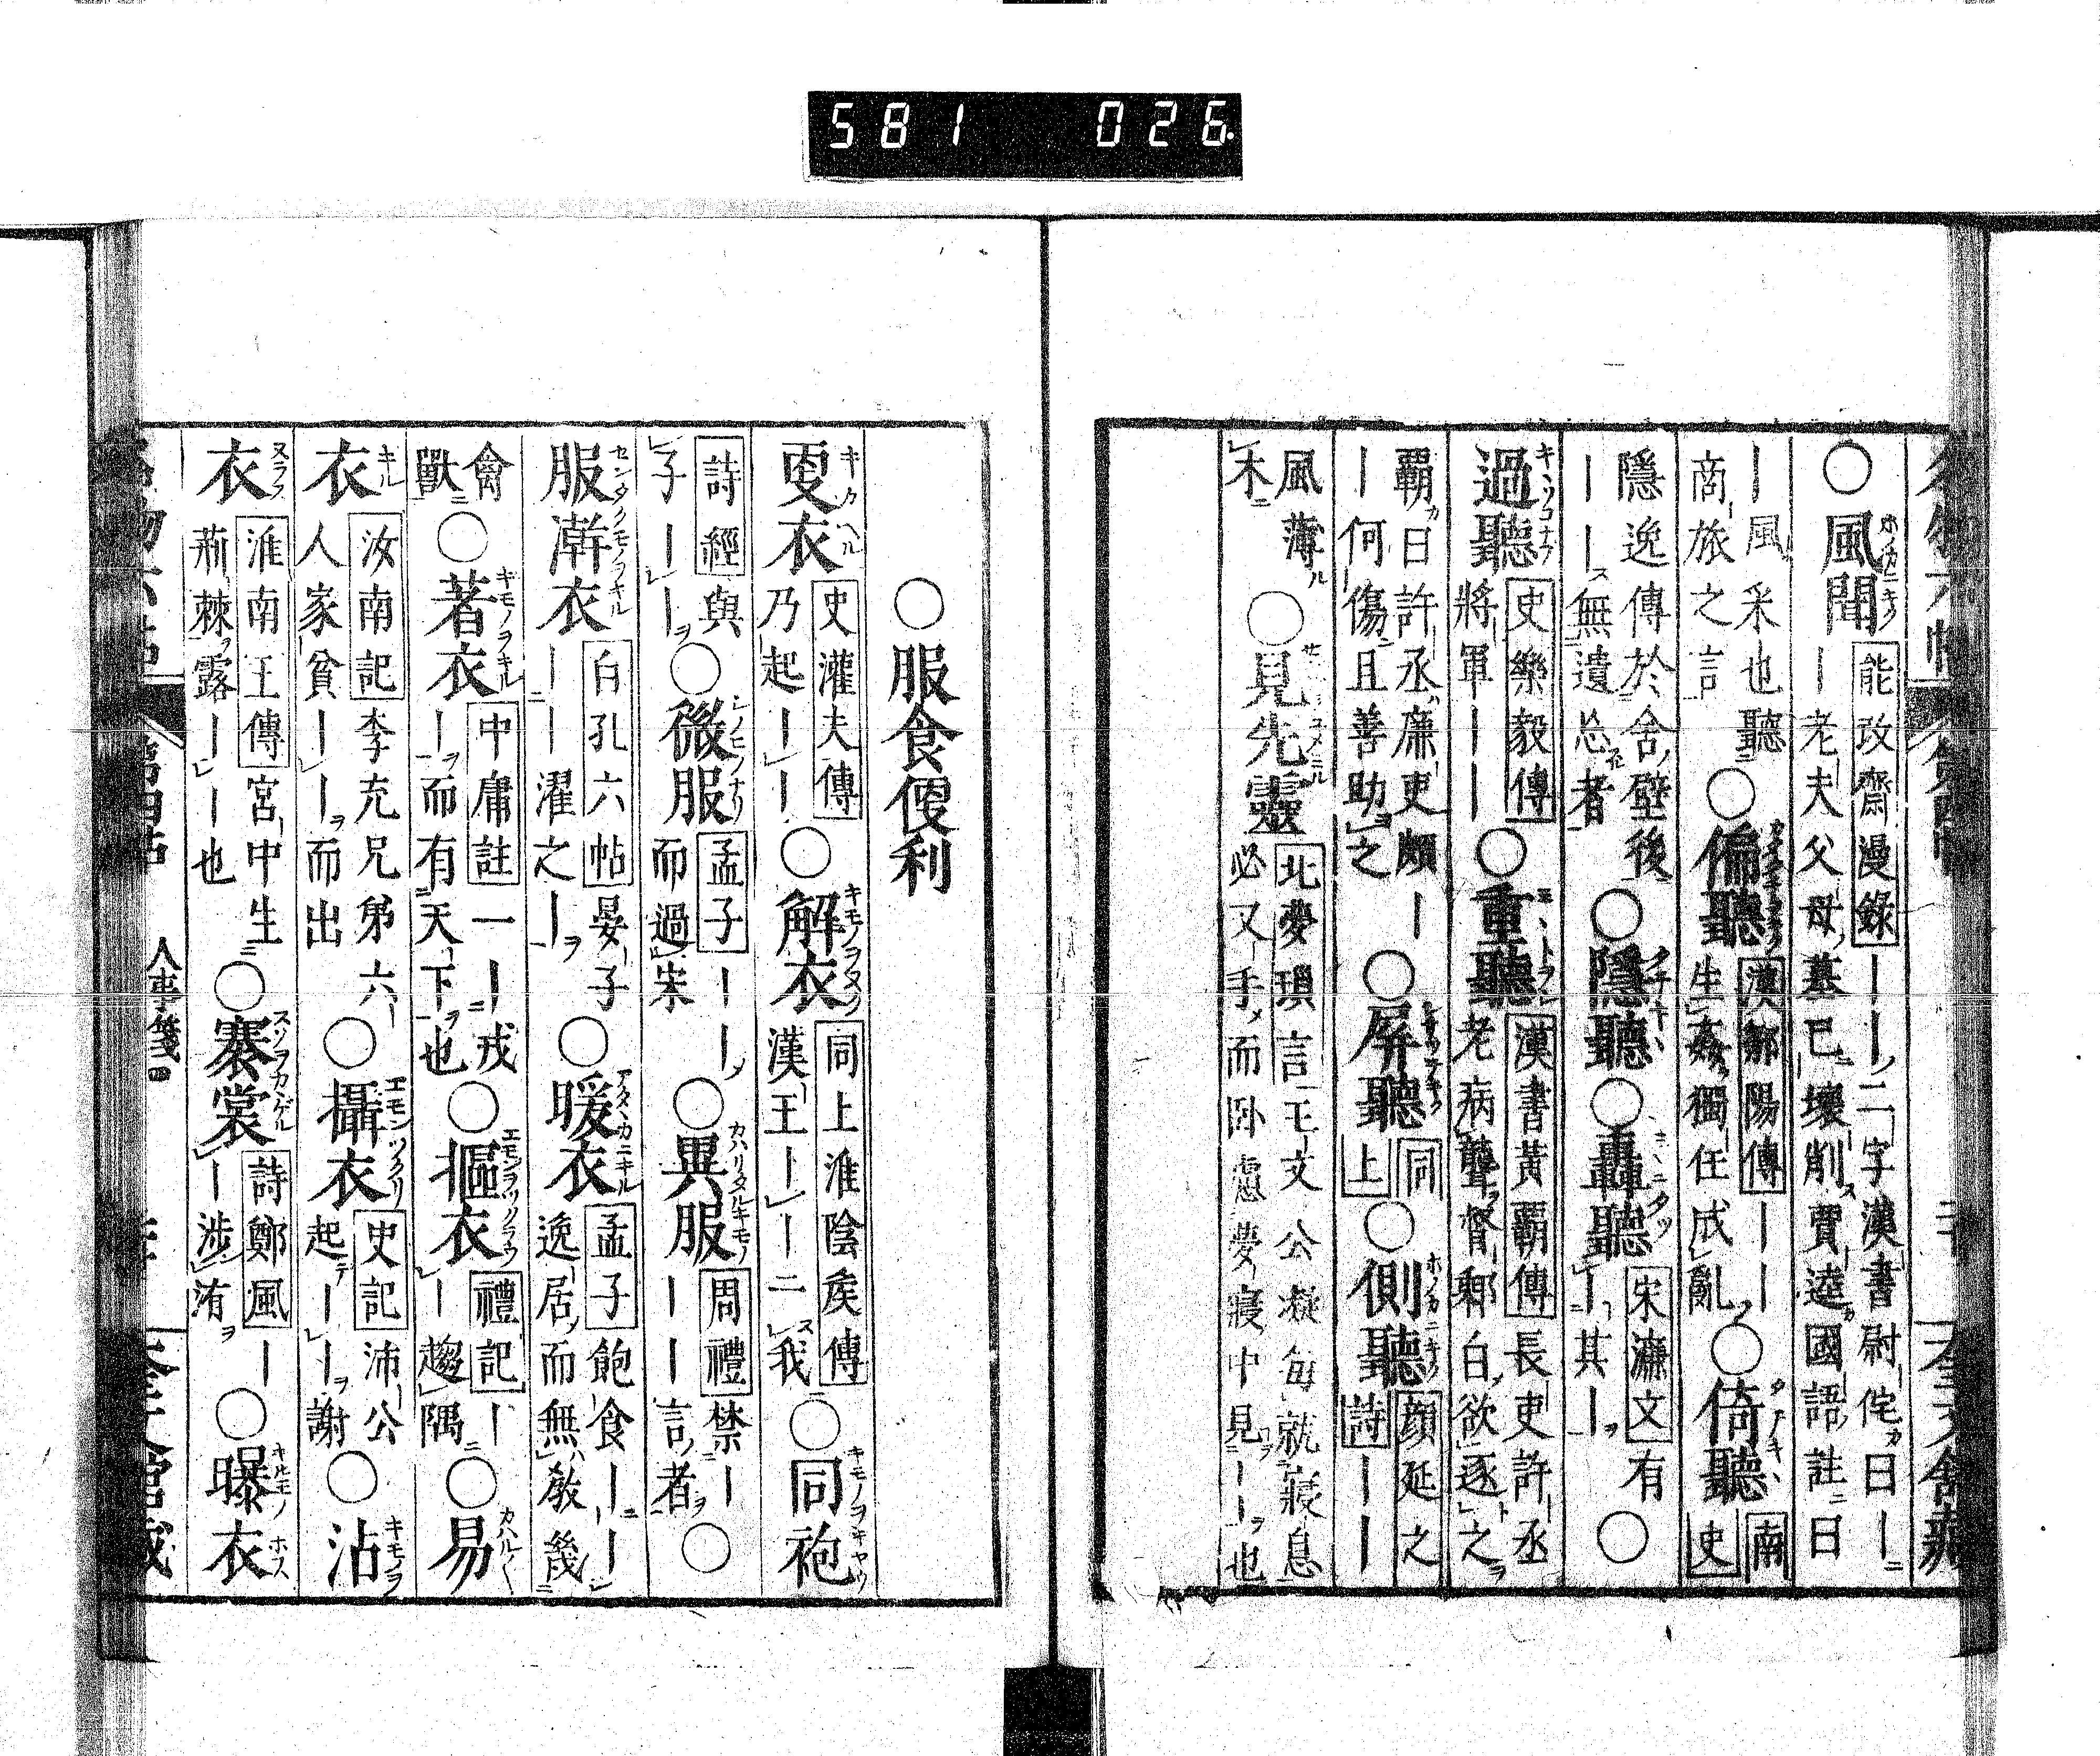 581 026
○風聞 能改齋漫錄 ーー二字漢書尉佗曰ー
ー老夫父母墓已壞削賈逵國語註曰
ー風采也聽
商旅之言 ○偏聽 漢鄒陽傳 ーー
生姦獨任成亂 ○倚聽 南史
隱逸傳於舍壁後
ーー無遺忘者 ○隱聽 ○聶聽 宋濂文 有
ー其ー ○
過聽 史樂毅傳
將軍ーー ○重聽 漢書黃覇傳 長吏許丞
老病聾督郵白欲逐之
覇曰許丞廉吏頗ー
ー何傷且善助之 ○屏聽 同上 ○側聽 顔延之詩 ーー
風薄
木 ○見先靈 北夢瑣言 王文公凝每就寢息
必叉手而卧慮夢寢中見ーー也
○服食便利
更衣 史灌夫傳
乃起ーー ○解衣 同上淮陰侯傳
漢王ーー二我 ○同袍
詩經 與
子ーー ○微服 孟子 ーー
而過宋 ○異服 周禮 禁ー
ーー言者 ○
服澣衣 白孔六帖 晏子
ーー濯之ー ○暖衣 孟子 飽食ーー
逸居而無教幾
禽
獸 ○著衣 中庸註 一ー戎
ー而有天下也 ○摳衣 禮記 ー
ー趨隅 ○易
衣 汝南記 李充兄弟六
人家貧ーー而出 ○攝衣 史記 沛公
起ーー謝 ○沾
衣 淮南王傳 宮中生
荊棘露ーー也 ○褰裳 詩鄭風 ー
ー涉洧 ○曝衣
人事箋四